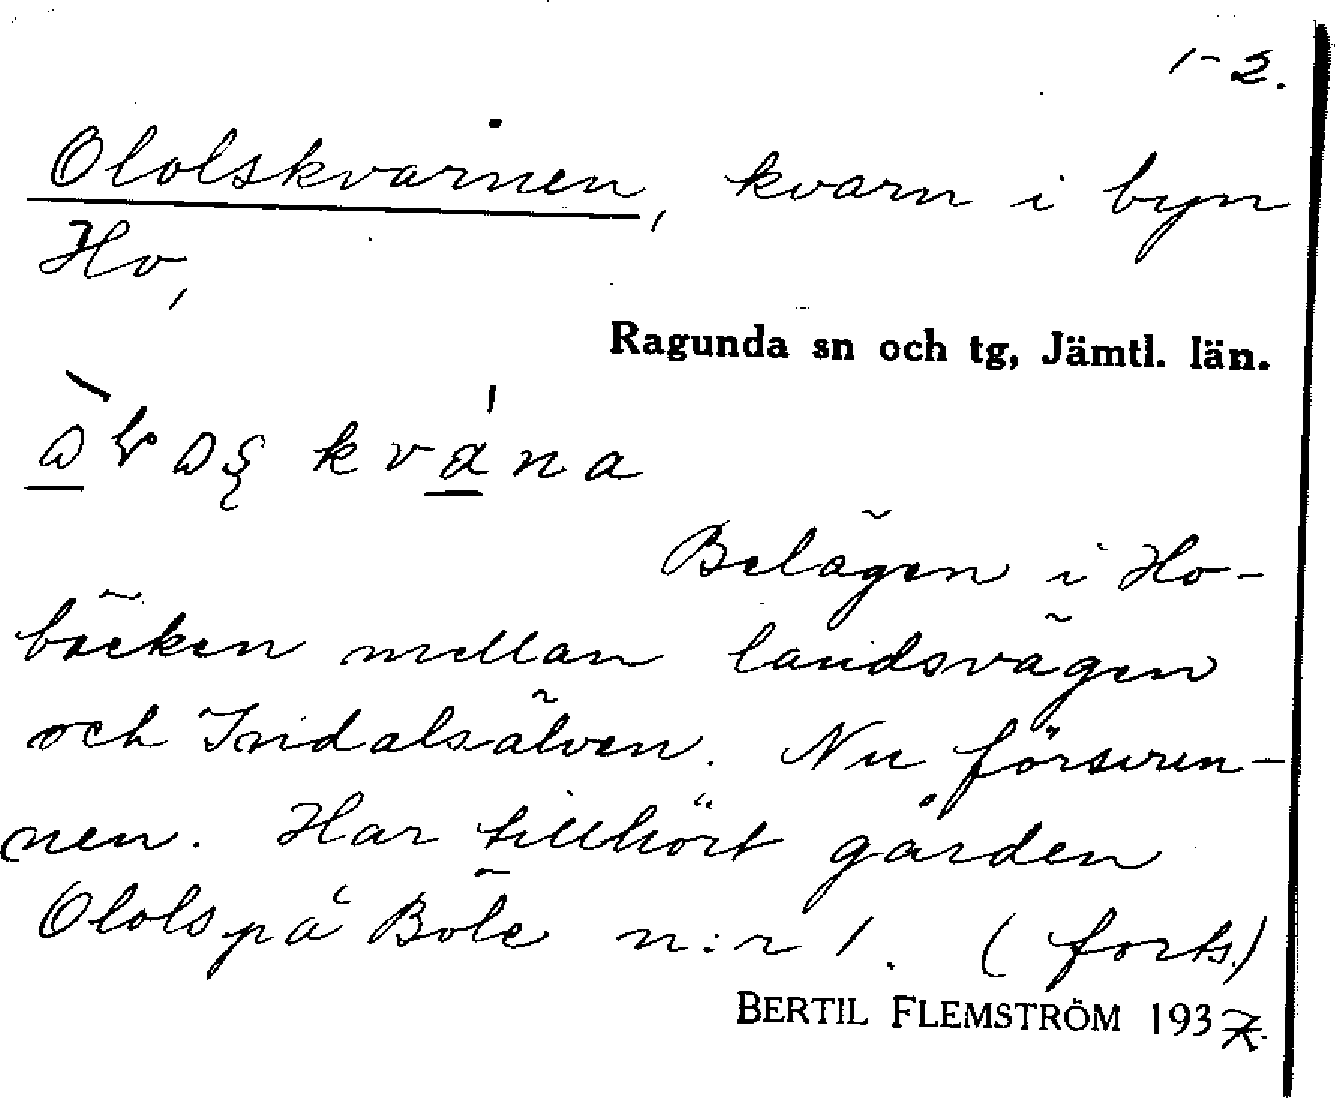 1-2.
Ololskvarnen, kvarn i byn
Ho,
Ragunda sn och tg, Jämtl. län.
kvána
Belägen i Ho-
bäcken mellan landsvägen
och Indalsälven. Nu försvun-
nen. Har tillhört gården
Olols på Böle n:r 1. (forts.)
BERTIL FLEMSTRÖM 1937.